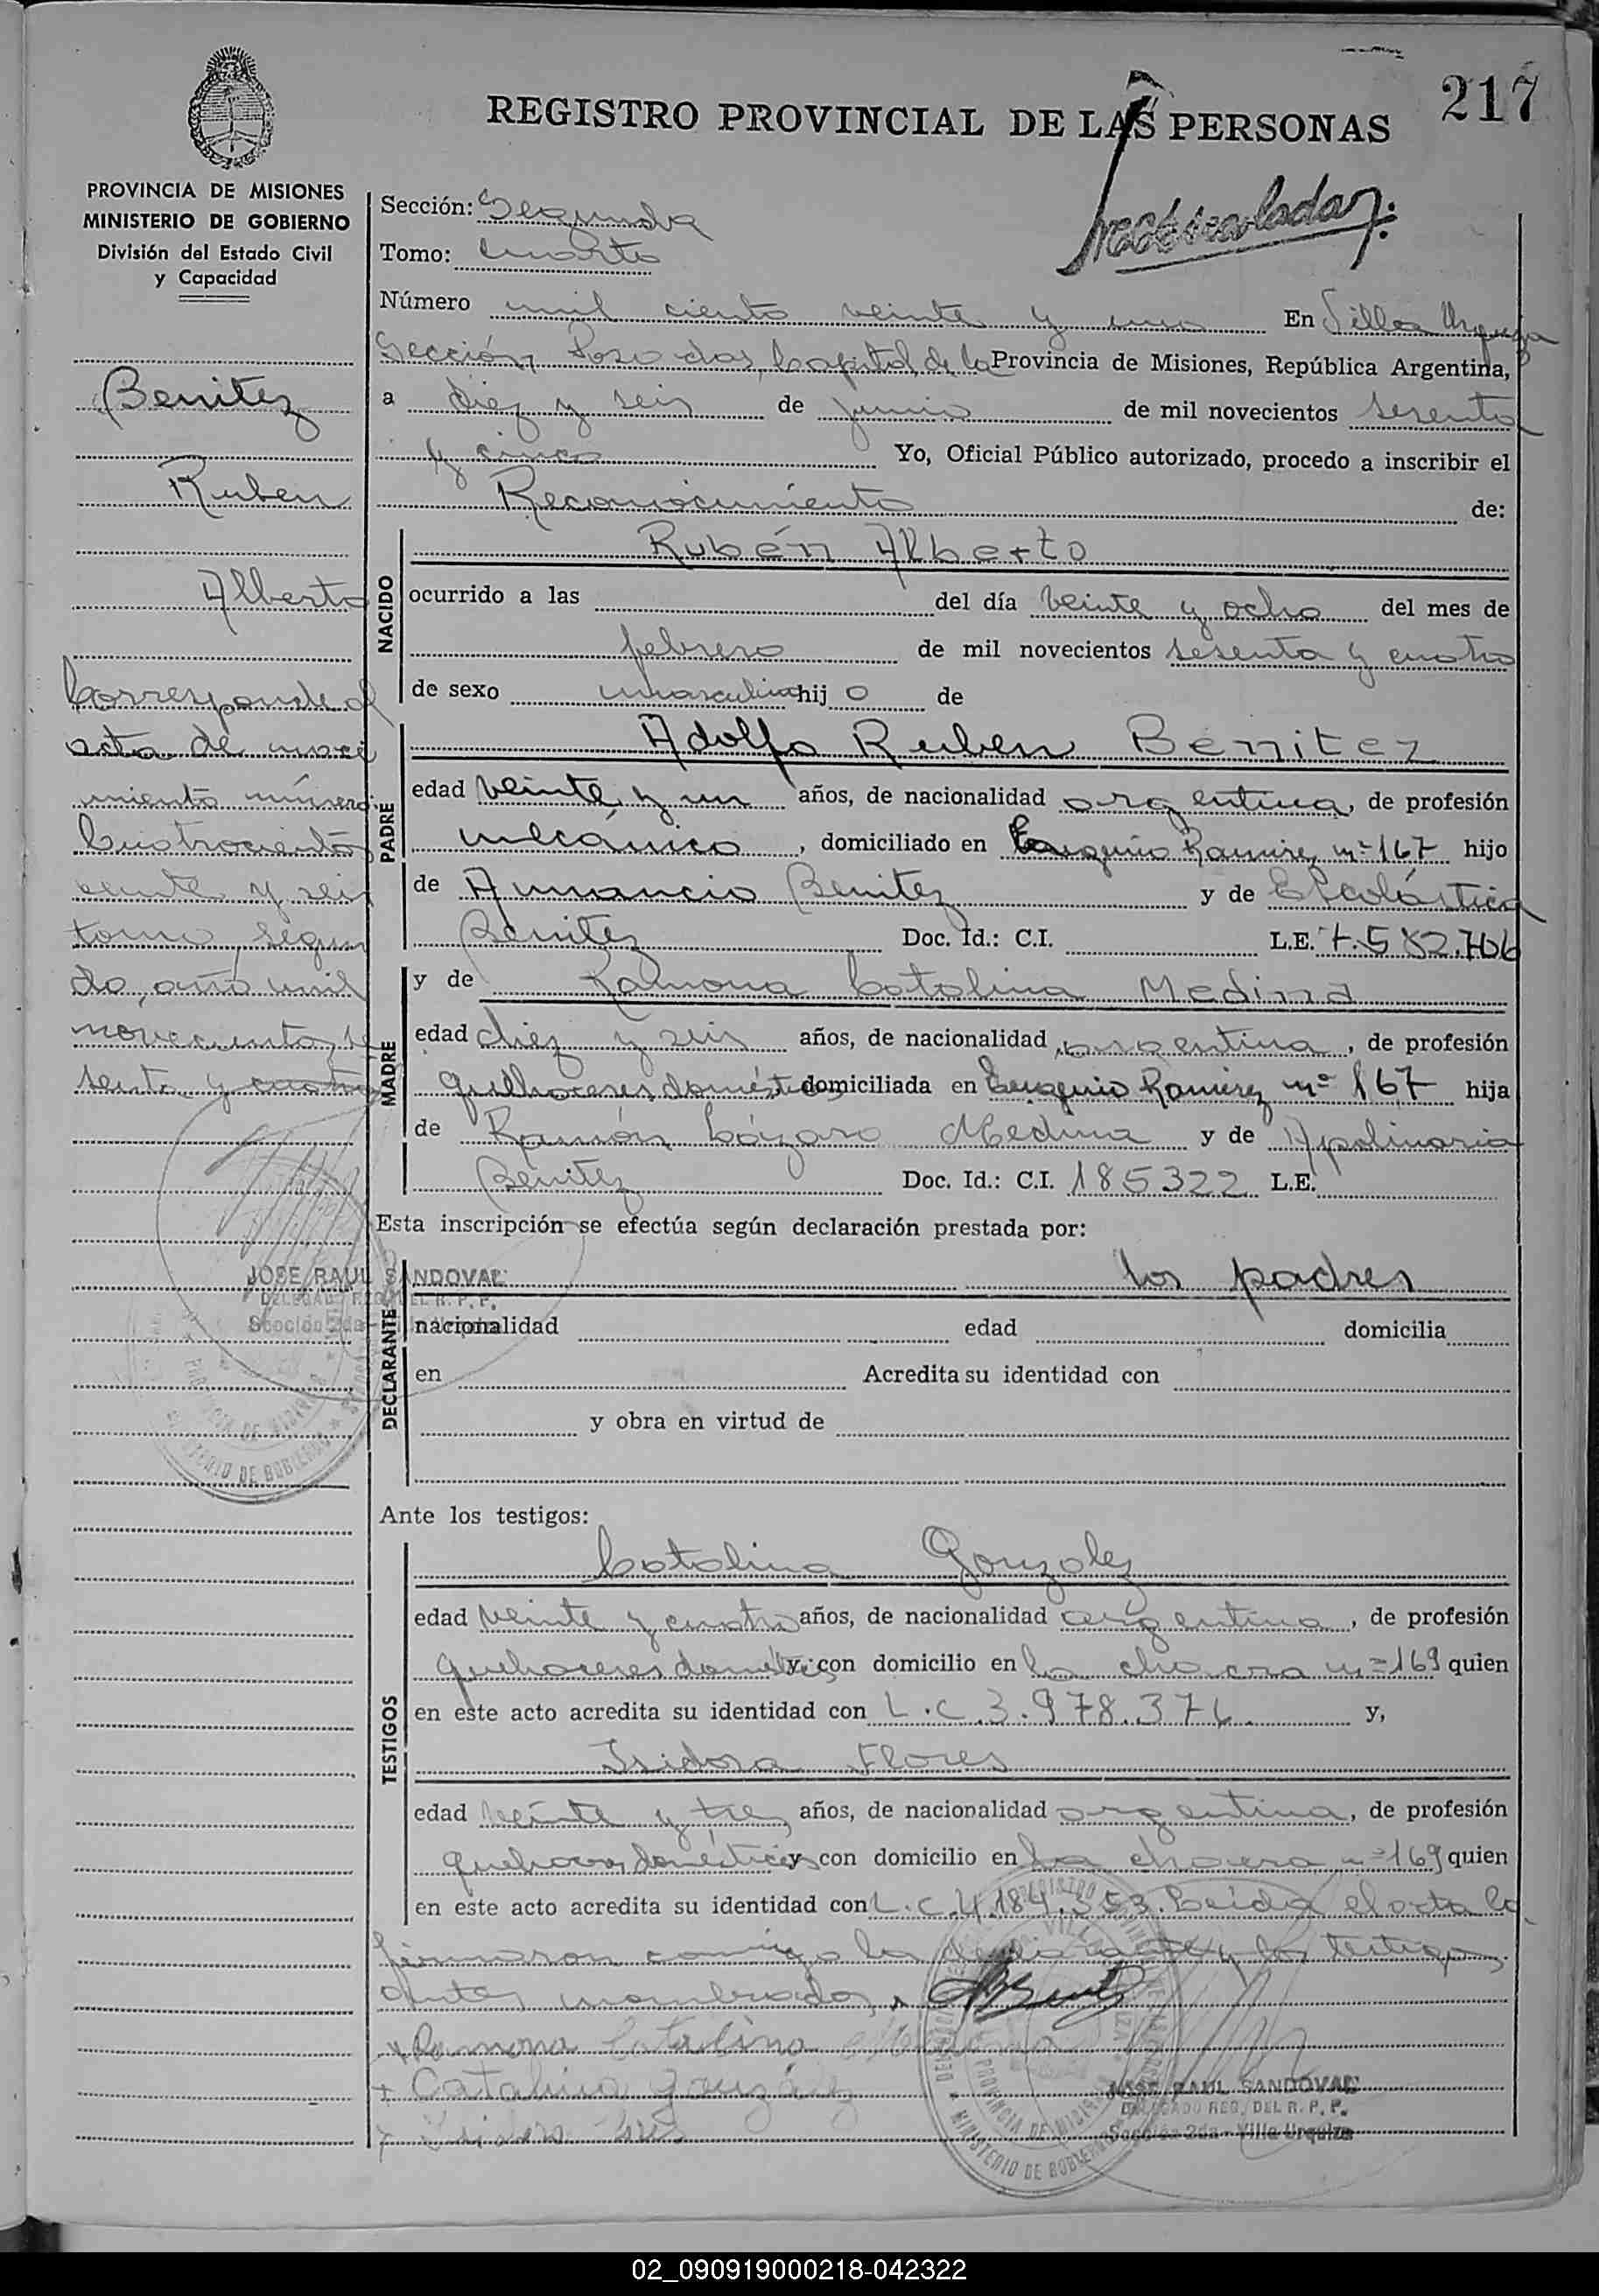 217
REGISTRO PROVINCIAL DE LAS PERSONAS
PROVINCIA DE MISIONES
MINISTERIO DE GOBIERNO
División del Estado Civil
y Capacidad
Benitez
Ruben
Alberto
Corresponde al
acta de naci
miento número
Cuatrocientos
veinte y seis
tomo segun
do, año mil
novecientos se
senta y cuatro
JOSE RAUL SANDOVAL
DELEGADO REG. DEL R. P. P.
Sección 2da - Villa Urquiza
Sección: Segunda
Tomo: Cuarto
Número mil ciento veinte y uno En Villa Urquiza
Sección, Posadas, Capital, de la Provincia de Misiones, República Argentina,
a diez y seis de junio de mil novecientos sesenta
y cinco Yo, Oficial Público autorizado, procedo a inscribir el
Reconocimiento de:
NACIDO
Rubén Alberto
ocurrido a las del día veinte y ocho del mes de
febrero de mil novecientos sesenta y cuatro
de sexo masculino hij o de
PADRE
Adolfo Ruben Benitez
edad veinte y un años, de nacionalidad argentina, de profesión
mecánico, domiciliado en Eugenio Ramirez nº 167 hijo
de Amancio Benitez y de Escolástica
Benitez Doc. Id.: C.I. L.E. 7.582.706
MADRE
y de Ramona Catalina Medina
edad diez y seis años, de nacionalidad argentina, de profesión
quehaceres domésticos domiciliada en Eugenio Ramirez nº 167 hija
de Ramón Lázaro Medina y de Apolinaria
Benitez Doc. Id.: C.I. 185322 L.E.
Esta inscripción se efectúa según declaración prestada por:
DECLARANTE
los padres
nacionalidad edad domicilia
en Acredita su identidad con
y obra en virtud de
Ante los testigos:
TESTIGOS
Catalina Gonzalez
edad veinte y cuatro años, de nacionalidad argentina, de profesión
quehaceres domésticos y con domicilio en La chacra nº 169 quien
en este acto acredita su identidad con L.C. 3.978.376 y,
Isidora Flores
edad veinte y tres años, de nacionalidad argentina, de profesión
quehaceres domésticos y con domicilio en La chacra nº 169 quien
en este acto acredita su identidad con L.C. 4.184.353. Leida el acta la
firmaron conmigo los declarantes y los testigos
antes nombrados.
Ramona Catalina Medina
Catalina González
JOSE RAUL SANDOVAL
DELEGADO REG. DEL R. P. P.
Sección 2da - Villa Urquiza
02_090919000218-042322